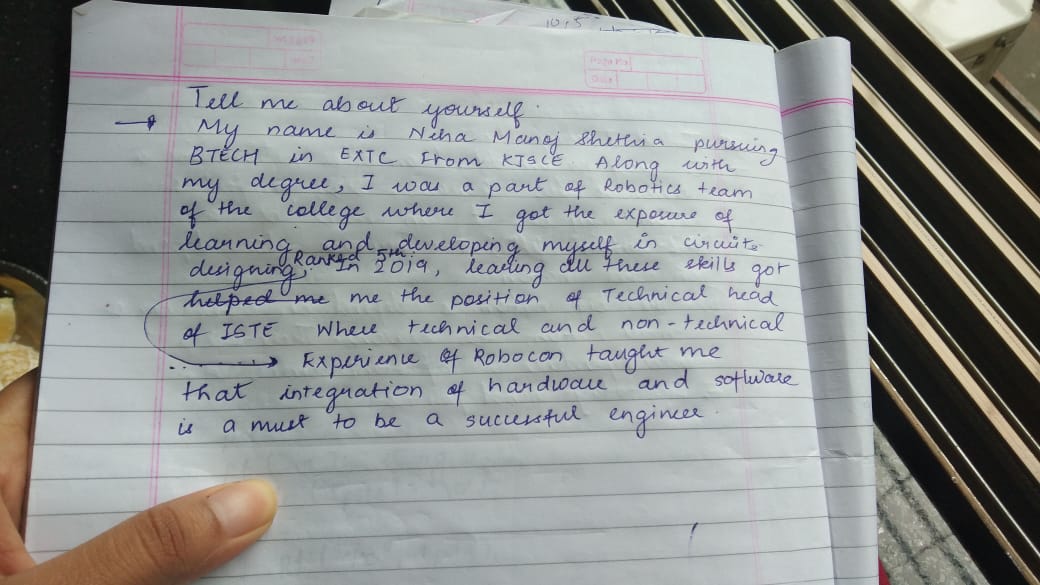 10,5
Page No.
Date
Tell me about yourself.
→ My name is Neha Manoj Shethia pursuing
BTECH in EXTC From KJSCE. Along with
my degree, I was a part of Robotics team
of the college where I got the exposure of
learning and developing myself in circuits
designing, Ranked 5th In 2019, leading all these skills got
helped me me the position of Technical head
of ISTE Where technical and non-technical
→ Experience of Robocon taught me
that integration of hardware and software
is a must to be a successful engineer.